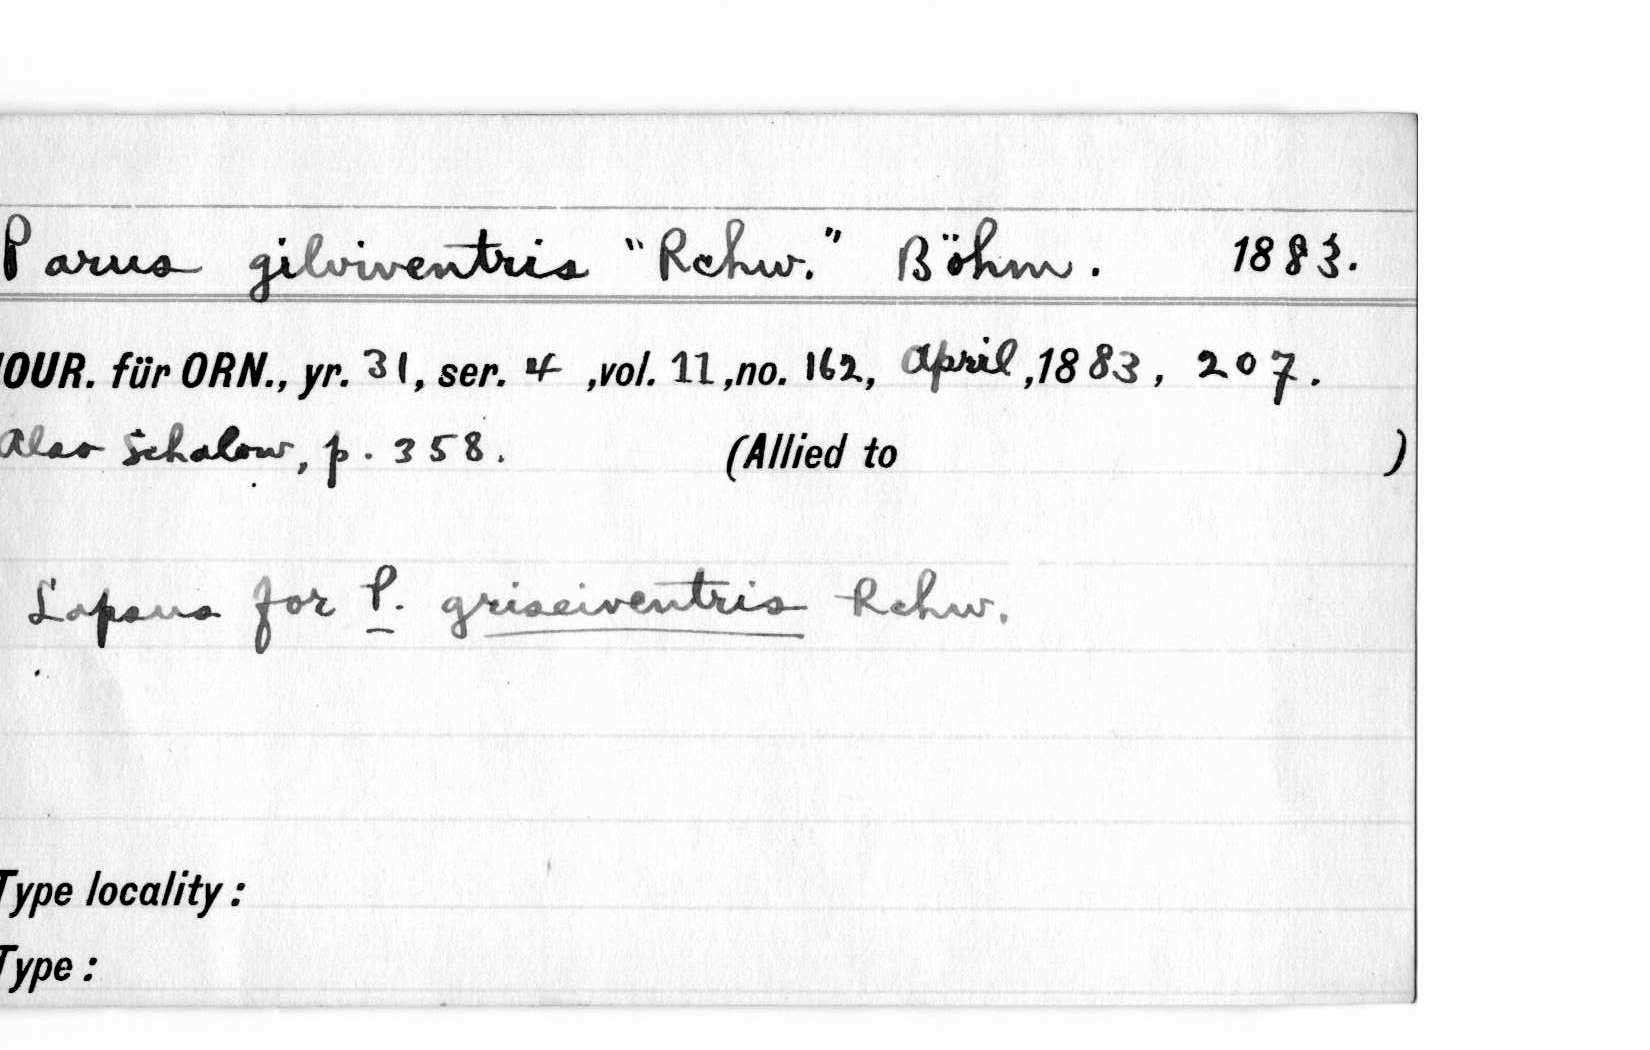 Parus gilviventris "Rchw." Böhm. 1883.
JOUR. für ORN., yr. 31, ser. 4, vol. 11, no. 162, April, 1883, 207.
Also Schalow, p. 358. (Allied to )
Lapsus for P. griseiventris Rchw.
Type locality:
Type: